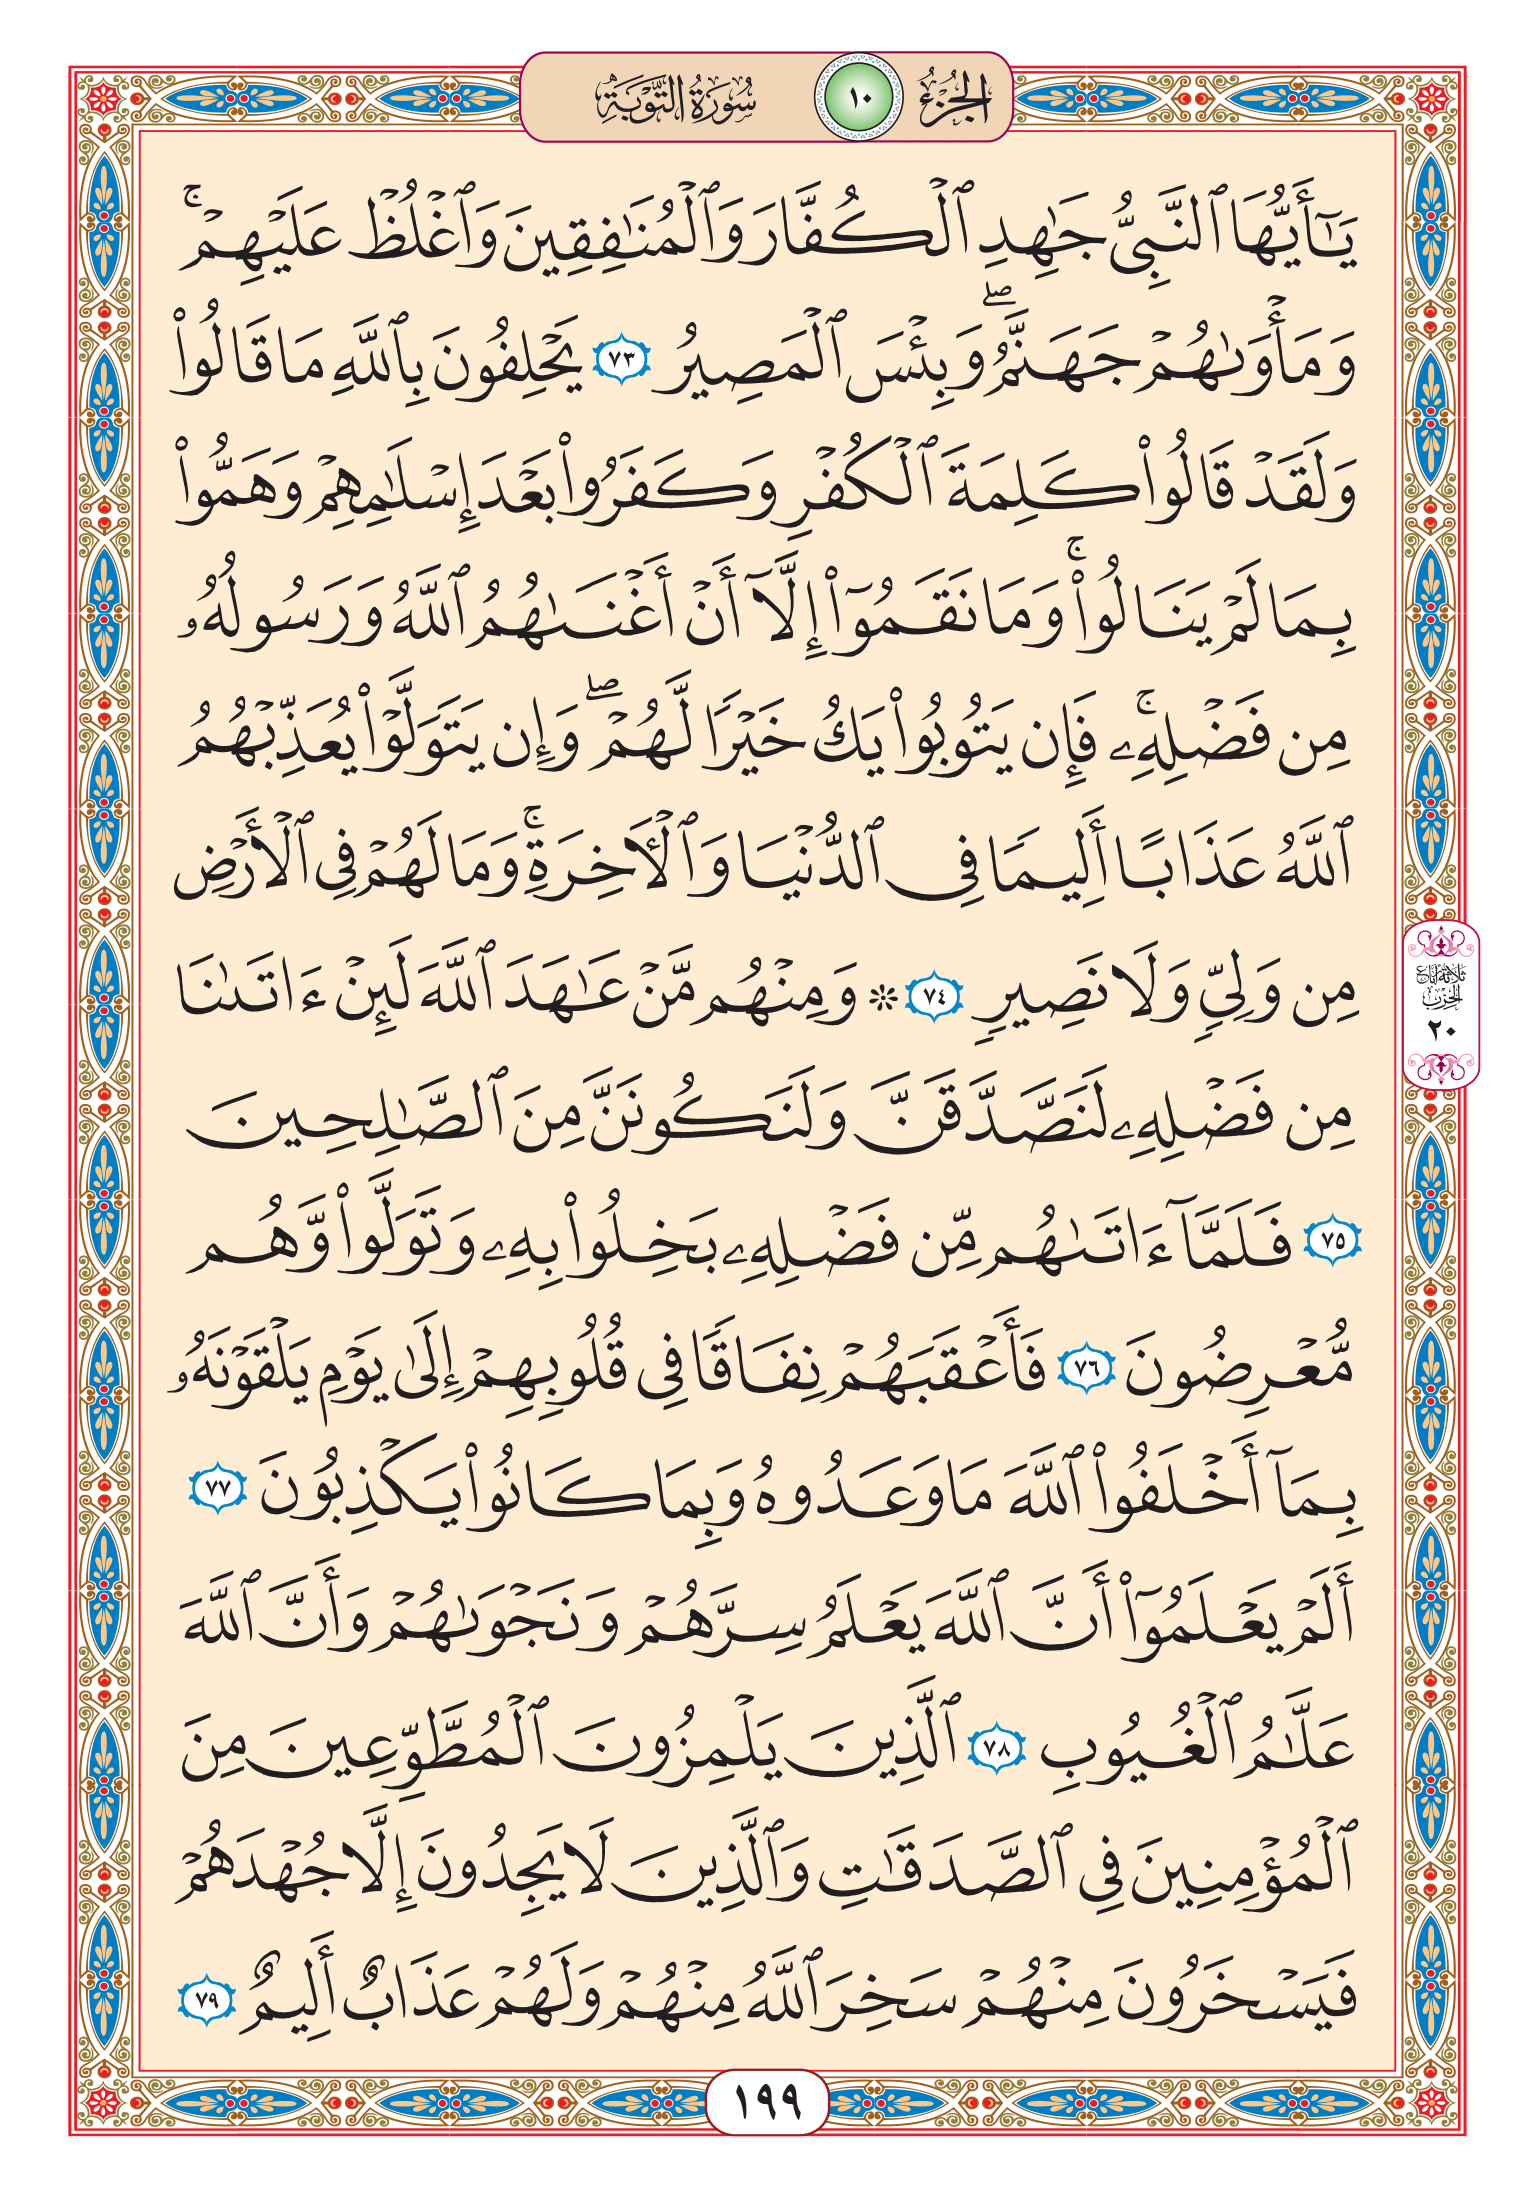 الجزء ١٠ سورة التوبة
يَـٰٓأَيُّهَا ٱلنَّبِىُّ جَـٰهِدِ ٱلْكُفَّارَ وَٱلْمُنَـٰفِقِينَ وَٱغْلُظْ عَلَيْهِمْ ۚ
وَمَأْوَىٰهُمْ جَهَنَّمُ ۖ وَبِئْسَ ٱلْمَصِيرُ ٧٣ يَحْلِفُونَ بِٱللَّهِ مَا قَالُوا۟
وَلَقَدْ قَالُوا۟ كَلِمَةَ ٱلْكُفْرِ وَكَفَرُوا۟ بَعْدَ إِسْلَـٰمِهِمْ وَهَمُّوا۟
بِمَا لَمْ يَنَالُوا۟ ۚ وَمَا نَقَمُوٓا۟ إِلَّآ أَنْ أَغْنَىٰهُمُ ٱللَّهُ وَرَسُولُهُۥ
مِن فَضْلِهِۦ ۚ فَإِن يَتُوبُوا۟ يَكُ خَيْرًا لَّهُمْ ۖ وَإِن يَتَوَلَّوْا۟ يُعَذِّبْهُمُ
ٱللَّهُ عَذَابًا أَلِيمًا فِى ٱلدُّنْيَا وَٱلْـَٔاخِرَةِ ۚ وَمَا لَهُمْ فِى ٱلْأَرْضِ
مِن وَلِىٍّ وَلَا نَصِيرٍ ٧٤ ۞ وَمِنْهُم مَّنْ عَـٰهَدَ ٱللَّهَ لَئِنْ ءَاتَىٰنَا
مِن فَضْلِهِۦ لَنَصَّدَّقَنَّ وَلَنَكُونَنَّ مِنَ ٱلصَّـٰلِحِينَ
٧٥ فَلَمَّآ ءَاتَىٰهُم مِّن فَضْلِهِۦ بَخِلُوا۟ بِهِۦ وَتَوَلَّوا۟ وَّهُم
مُّعْرِضُونَ ٧٦ فَأَعْقَبَهُمْ نِفَاقًا فِى قُلُوبِهِمْ إِلَىٰ يَوْمِ يَلْقَوْنَهُۥ
بِمَآ أَخْلَفُوا۟ ٱللَّهَ مَا وَعَدُوهُ وَبِمَا كَانُوا۟ يَكْذِبُونَ ٧٧
أَلَمْ يَعْلَمُوٓا۟ أَنَّ ٱللَّهَ يَعْلَمُ سِرَّهُمْ وَنَجْوَىٰهُمْ وَأَنَّ ٱللَّهَ
عَلَّـٰمُ ٱلْغُيُوبِ ٧٨ ٱلَّذِينَ يَلْمِزُونَ ٱلْمُطَّوِّعِينَ مِنَ
ٱلْمُؤْمِنِينَ فِى ٱلصَّدَقَـٰتِ وَٱلَّذِينَ لَا يَجِدُونَ إِلَّا جُهْدَهُمْ
فَيَسْخَرُونَ مِنْهُمْ سَخِرَ ٱللَّهُ مِنْهُمْ وَلَهُمْ عَذَابٌ أَلِيمٌ ٧٩
ثلاثة أرباع
الحزب
٢٠
١٩٩